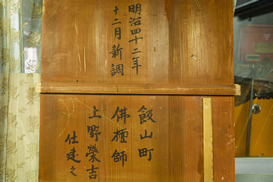 明治四十二年
十二月新調
飯山町
佛檀師
上野榮吉
仕建之